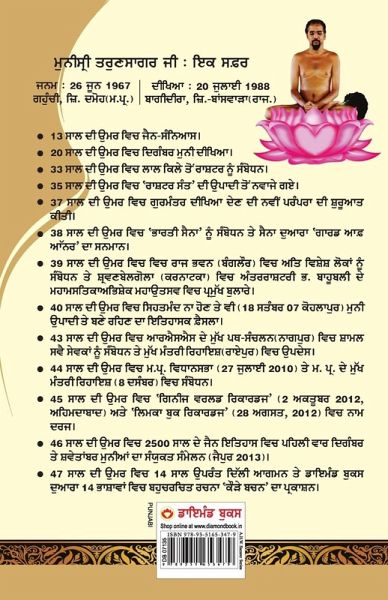 ਮੁਨੀਸ਼੍ਰੀ ਤਰੁਣਸਾਗਰ ਜੀ : ਇਕ ਸਫ਼ਰ
ਜਨਮ : 26 ਜੂਨ 1967
ਗਹੁੰਚੀ, ਜ਼ਿ. ਦਮੋਹ(ਮ.ਪ੍ਰ.)
ਦੀਖਿਆ : 20 ਜੁਲਾਈ 1988
ਬਾਗਿਦੀਰਾ, ਜ਼ਿ.-ਬਾਂਸਵਾੜਾ(ਰਾਜ.)
• 13 ਸਾਲ ਦੀ ਉਮਰ ਵਿਚ ਜੈਨ-ਸੰਨਿਆਸ।
• 20 ਸਾਲ ਦੀ ਉਮਰ ਵਿਚ ਦਿਗੰਬਰ ਮੁਨੀ ਦੀਖਿਆ।
• 33 ਸਾਲ ਦੀ ਉਮਰ ਵਿਚ ਲਾਲ ਕਿਲੇ ਤੋਂ ਰਾਸ਼ਟਰ ਨੂੰ ਸੰਬੋਧਨ।
• 35 ਸਾਲ ਦੀ ਉਮਰ ਵਿਚ 'ਰਾਸ਼ਟਰ ਸੰਤ' ਦੀ ਉਪਾਦੀ ਤੋਂ ਨਵਾਜੇ ਗਏ।
• 37 ਸਾਲ ਦੀ ਉਮਰ ਵਿਚ ਗੁਰਮੰਤਰ ਦੀਖਿਆ ਦੇਣ ਦੀ ਨਵੀਂ ਪਰੰਪਰਾ ਦੀ ਸ਼ੁਰੂਆਤ
ਕੀਤੀ।
• 38 ਸਾਲ ਦੀ ਉਮਰ ਵਿਚ 'ਭਾਰਤੀ ਸੈਨਾ' ਨੂੰ ਸੰਬੋਧਨ ਤੇ ਸੈਨਾ ਦੁਆਰਾ 'ਗਾਰਡ ਆਫ਼
ਆੱਨਰ' ਦਾ ਸਨਮਾਨ।
• 39 ਸਾਲ ਦੀ ਉਮਰ ਵਿਚ ਵਿਚ ਰਾਜ ਭਵਨ (ਬੰਗਲੌਰ) ਵਿਚ ਅਤਿ ਵਿਸ਼ੇਸ਼ ਲੋਕਾਂ ਨੂੰ
ਸੰਬੋਧਨ ਤੇ ਸ਼੍ਰਵਣਬੇਲਗੋਲਾ (ਕਰਨਾਟਕਾ) ਵਿਚ ਅੰਤਰਰਾਸ਼ਟਰੀ ਭ. ਬਾਹੂਬਲੀ ਦੇ
ਮਹਾਮਸਤਿਕਾਅਭਿਸ਼ੇਕ ਮਹਾਉਤਸਵ ਵਿਚ ਪ੍ਰਮੁੱਖ ਬੁਲਾਰੇ।
• 40 ਸਾਲ ਦੀ ਉਮਰ ਵਿਚ ਸਿਹਤਮੰਦ ਨਾ ਹੋਣ ਤੇ ਵੀ (18 ਸਤੰਬਰ 07 ਕੋਲਾਪੁਰ) ਮੁਨੀ
ਉਪਾਦੀ ਤੇ ਬਣੇ ਰਹਿਣ ਦਾ ਇਤਿਹਾਸਕ ਫ਼ੈਸਲਾ।
• 43 ਸਾਲ ਦੀ ਉਮਰ ਵਿਚ ਆਰਐਸਐਸ ਦੇ ਮੁੱਖ ਪਥ-ਸੰਚਲਨ(ਨਾਗਪੁਰ) ਵਿਚ ਸ਼ਾਮਲ
ਸਵੈ ਸੇਵਕਾਂ ਨੂੰ ਸੰਬੋਧਨ ਤੇ ਮੁੱਖ ਮੰਤਰੀ ਰਿਹਾਇਸ਼(ਰਾਏਪੁਰ) ਵਿਚ ਉਪਦੇਸ।
• 44 ਸਾਲ ਦੀ ਉਮਰ ਵਿਚ ਮ.ਪ੍ਰ. ਵਿਧਾਨਸਭਾ (27 ਜੁਲਾਈ 2010) ਤੇ ਮ. ਪ੍ਰ. ਦੇ ਮੁੱਖ
ਮੰਤਰੀ ਰਿਹਾਇਸ਼ (8 ਦਸੰਬਰ) ਵਿਚ ਸੰਬੋਧਨ।
• 45 ਸਾਲ ਦੀ ਉਮਰ ਵਿਚ 'ਗਿਨੀਜ ਵਰਲਡ ਰਿਕਾਰਡਜ' (2 ਅਕਤੂਬਰ 2012,
ਅਹਿਮਦਾਬਾਦ) ਅਤੇ 'ਲਿਮਕਾ ਬੁਕ ਰਿਕਾਰਡਜ' (28 ਅਗਸਤ, 2012) ਵਿਚ ਨਾਮ
ਦਰਜ।
• 46 ਸਾਲ ਦੀ ਉਮਰ ਵਿਚ 2500 ਸਾਲ ਦੇ ਜੈਨ ਇਤਿਹਾਸ ਵਿਚ ਪਹਿਲੀ ਵਾਰ ਦਿਗੰਬਰ
ਤੇ ਸ਼ਵੇਤਾਂਬਰ ਮੁਨੀਆਂ ਦਾ ਸੰਯੁਕਤ ਸੰਮੇਲਨ (ਜੈਪੁਰ 2013)।
• 47 ਸਾਲ ਦੀ ਉਮਰ ਵਿਚ 14 ਸਾਲ ਉਪਰੰਤ ਦਿੱਲੀ ਆਗਮਨ ਤੇ ਡਾਇਮੰਡ ਬੁਕਸ
ਦੁਆਰਾ 14 ਭਾਸ਼ਾਵਾਂ ਵਿਚ ਬਹੁਚਰਚਿਤ ਰਚਨਾ 'ਕੌੜੇ ਬਚਨ' ਦਾ ਪ੍ਰਕਾਸ਼ਨ।
ਡਾਇਮੰਡ ਬੁਕਸ
Shop online at www.diamondbook.in
ISBN 978-93-5165-347-9
PUNJABI
DB 07135